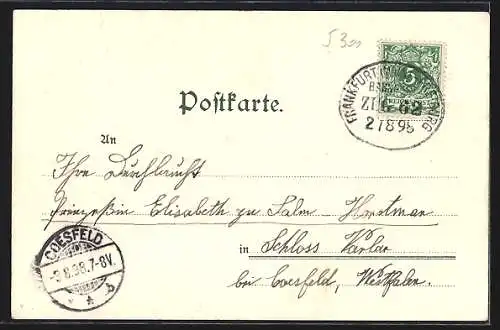 5300
5
FRANKFURT
BAHNPOST
ZUG 62
2 7 8 98
Postkarte.
An
Ihre Durchlaucht
Prinzeßin Elisabeth zu Salm Horstmar
in Schloss Varlar
bei Coesfeld, Westfalen.
COESFELD
-3.8.98.7-8V.
* * b